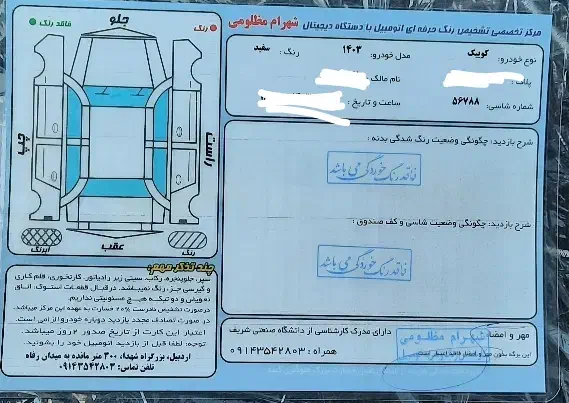 مرکز تخصصی تشخیص رنگ حرفه ای اتومبیل با دستگاه دیجیتال شهرام مظلومی
نوع خودرو: کوییک
مدل خودرو: ۱۴۰۳
رنگ: سفید
پلاک:
نام مالک:
شماره شاسی: ۵۶۷۸۸
ساعت و تاریخ:
شرح بازدید: چگونگی وضعیت رنگ شدگی بدنه:
فاقد رنگ خوردگی می باشد
شرح بازدید: چگونگی وضعیت شاسی و کف صندوق:
فاقد رنگ خوردگی می باشد
مهر و امضا
شهرام مظلومی
دارای مدرک کارشناسی از دانشگاه صنعتی شریف
این برگه بدون مهر و امضا فاقد اعتبار است
همراه: ۰۹۱۴۳۵۴۲۸۰۳
فاقد رنگ
جلو
رنگ
چپ
راست
عقب
آبرنگ
رنگ
چند تذکر مهم:
سپر، جلوپنجره، رکاب، سینی زیر رادیاتور، کارتخوری، قلم کاری
و گیرسی جزء رنگ نمیباشد. در قبال قطعات استوک، اتاق
تعویض و دوتیکه هیچ مسئولیتی نداریم.
درصورت تشخیص نادرست ۲۰٪ خسارت به عهده این مرکز میباشد.
در صورت تصادف مجدد بازدید دوباره خودرو الزامی است.
اعتبار این کارت از تاریخ صدور ۲ روز میباشد.
توجه: لطفا قبل از بازدید اتومبیل خود را بشوئید.
اردبیل، بزرگراه شهدا، ۳۰۰ متر مانده به میدان رفاه
تلفن تماس: ۰۹۱۴۳۵۴۲۸۰۳